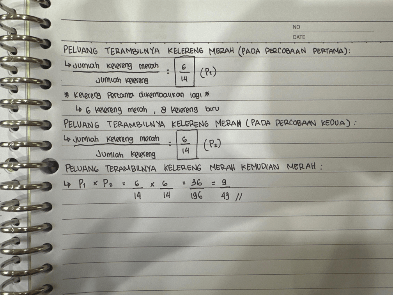 NO
DATE
PELUANG TERAMBILNYA KELERENG MERAH (PADA PERCOBAAN PERTAMA):
↳ Jumlah kelereng merah / Jumlah kelereng = 6/14 (P₁)
* Kelereng pertama dikembalikan lagi *
↳ 6 kelereng merah, 8 kelereng biru
PELUANG TERAMBILNYA KELERENG MERAH (PADA PERCOBAAN KEDUA):
↳ Jumlah kelereng merah / Jumlah kelereng = 6/14 (P₂)
PELUANG TERAMBILNYA KELERENG MERAH KEMUDIAN MERAH:
↳ P₁ × P₂ = 6/14 × 6/14 = 36/196 = 9/49 //